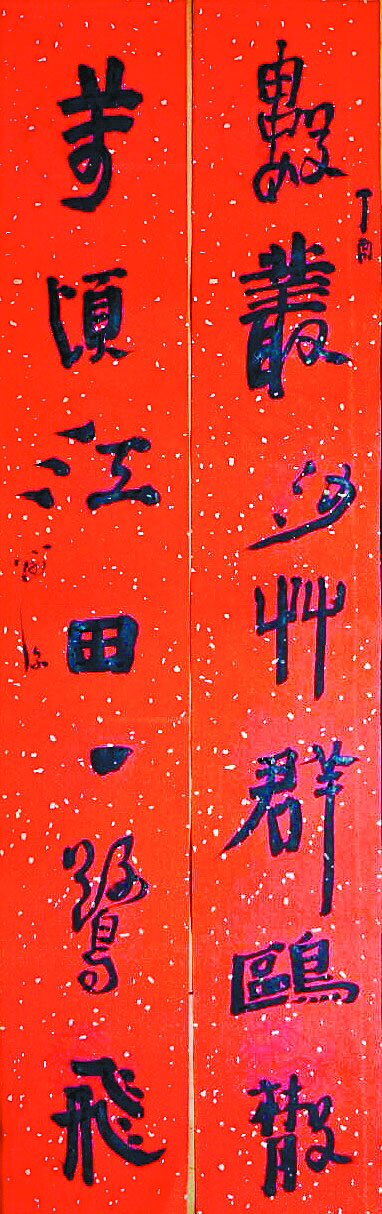 數叢沙艸群鷗散
丁酉
萬頃江田一鷺飛